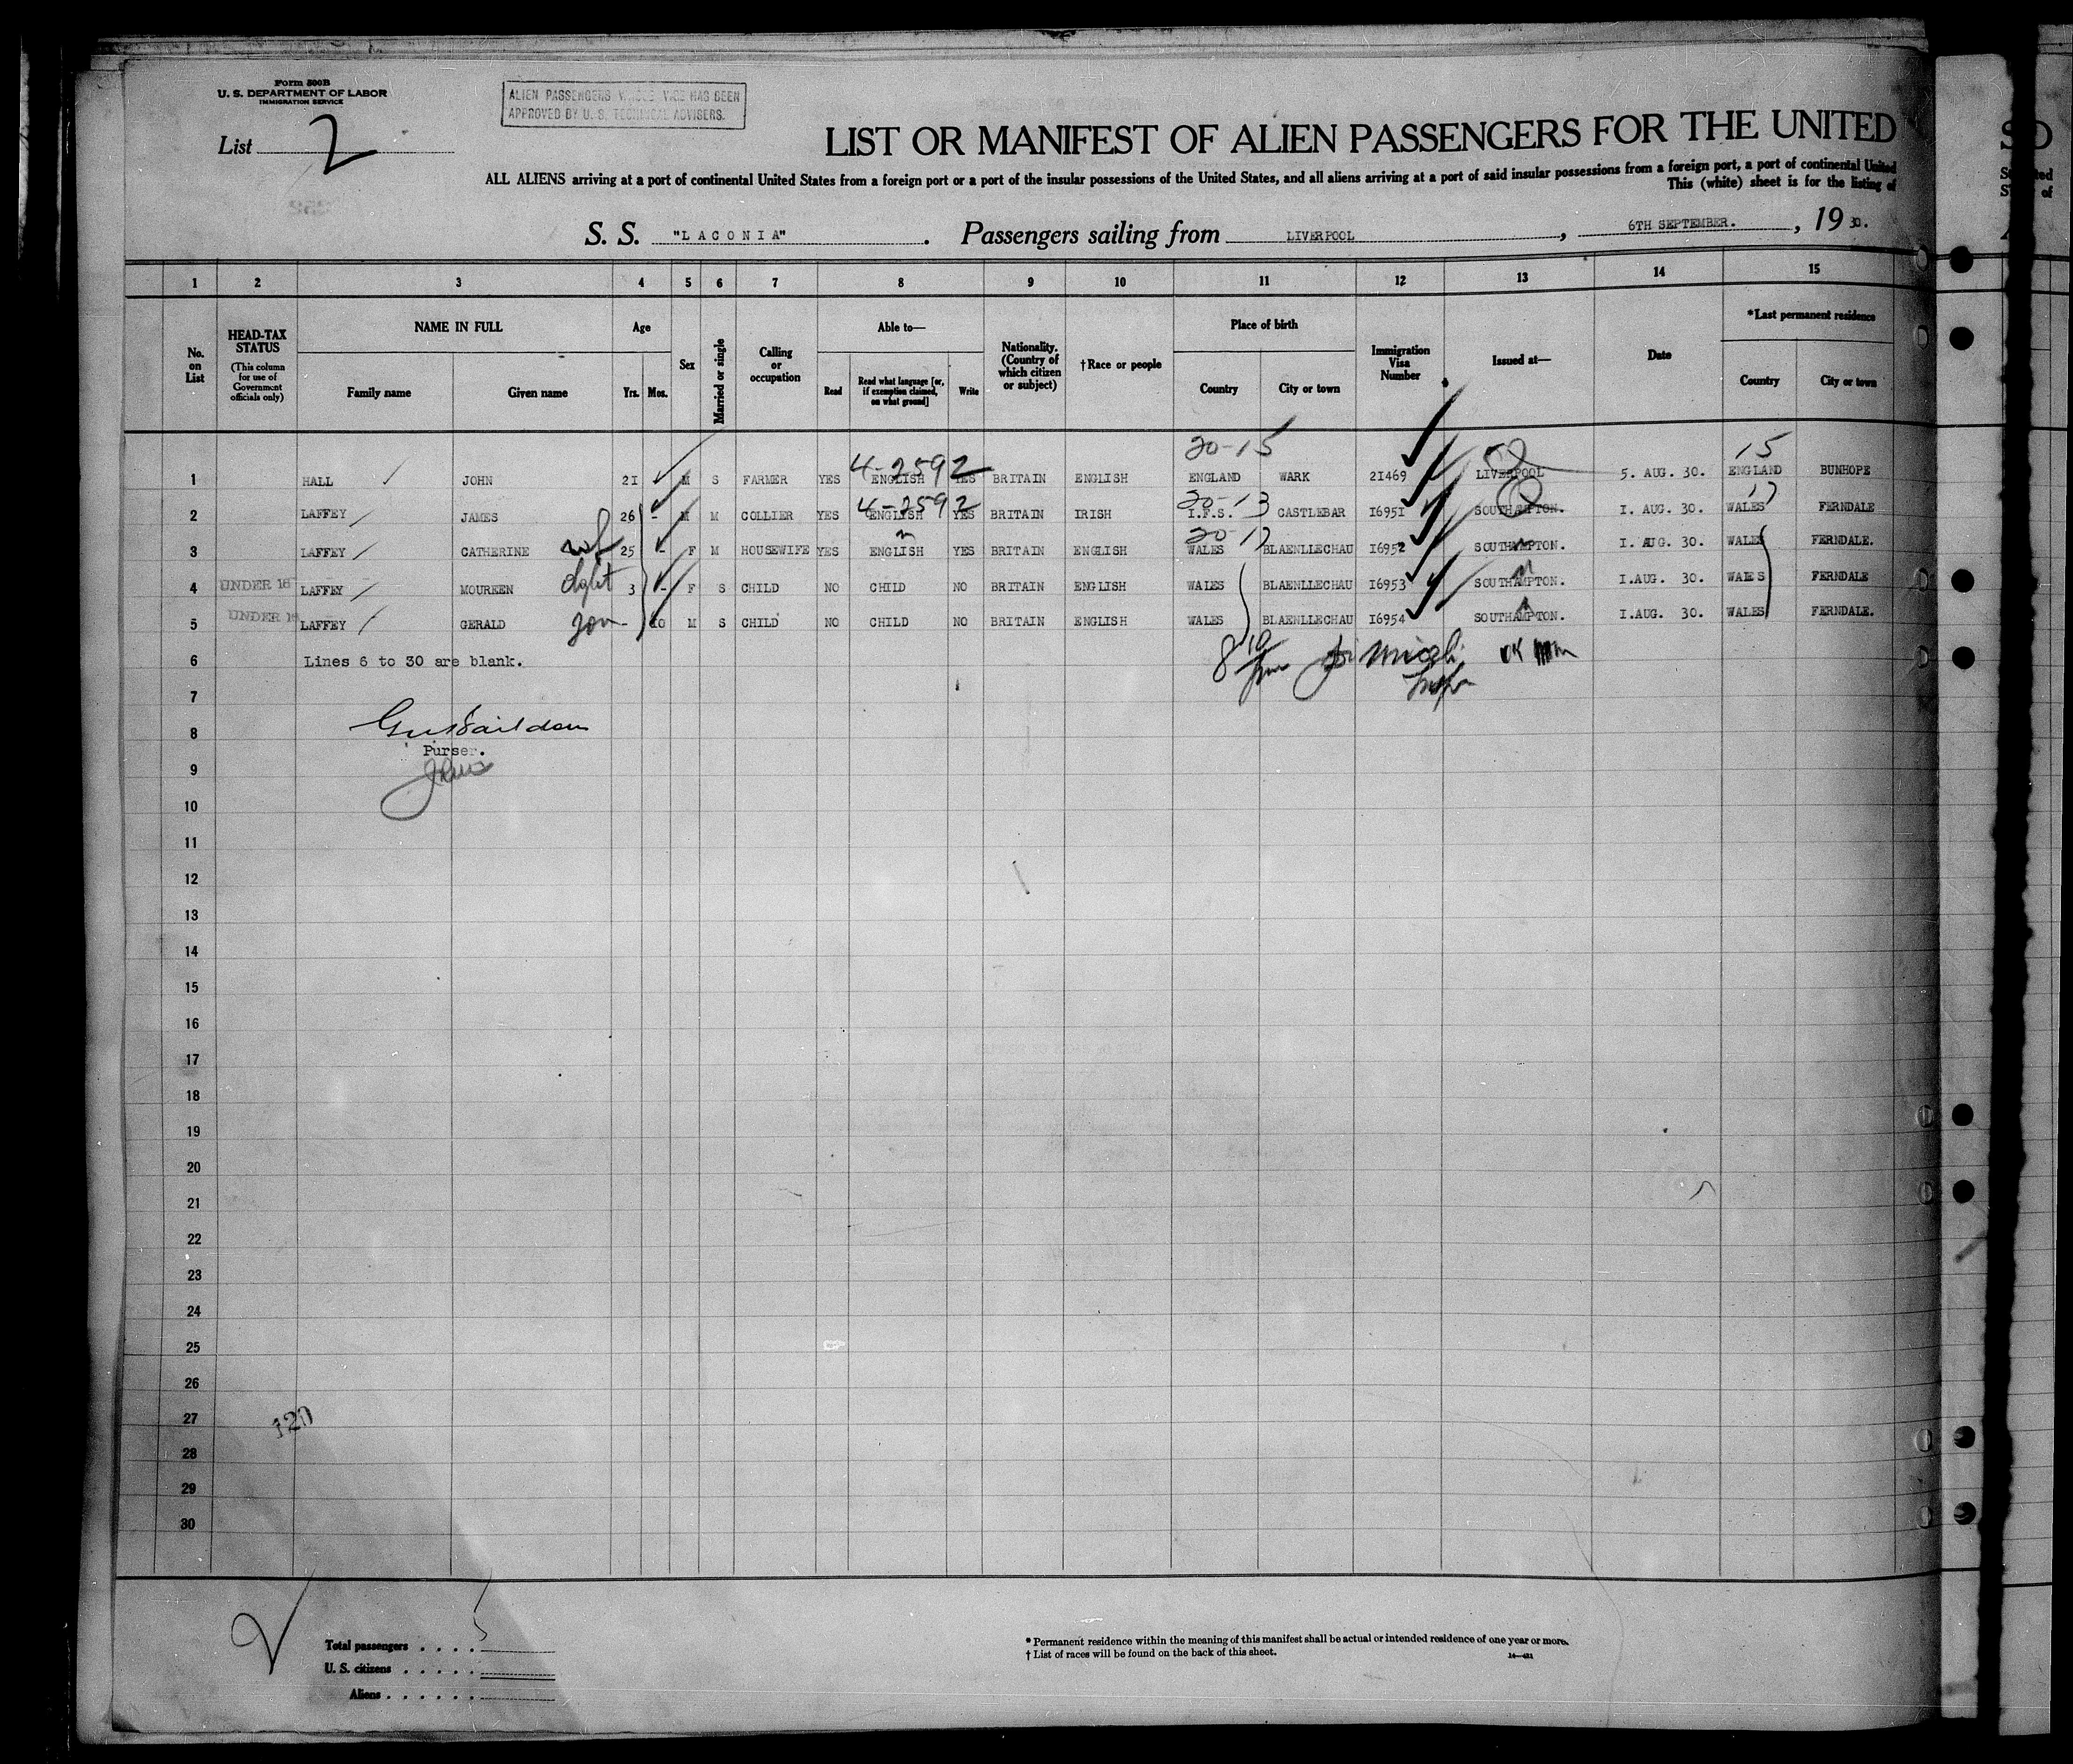 Form 500B
U. S. DEPARTMENT OF LABOR
IMMIGRATION SERVICE
ALIEN PASSENGERS WHOSE VISE HAS BEEN
APPROVED BY U. S. TECHNICAL ADVISERS.
List 2
LIST OR MANIFEST OF ALIEN PASSENGERS FOR THE UNITED
ALL ALIENS arriving at a port of continental United States from a foreign port or a port of the insular possessions of the United States, and all aliens arriving at a port of said insular possessions from a foreign port, a port of continental United
This (white) sheet is for the listing of
S. S. "LACONIA" . Passengers sailing from LIVERPOOL , 6TH SEPTEMBER. , 19 30.
1 2 3 4 5 6 7 8 9 10 11 12 13 14 15
No. on List
HEAD-TAX STATUS
(This column for use of Government officials only)
NAME IN FULL
Family name Given name
Age
Yrs. Mos.
Sex
Married or single
Calling or occupation
Able to—
Read Read what language [or, if exemption claimed, on what ground] Write
Nationality. (Country of which citizen or subject)
†Race or people
Place of birth
Country City or town
Immigration Visa Number
Issued at—
Date
*Last permanent residence
Country City or town
20-15 15
4-2592
1 HALL JOHN 21 M S FARMER YES ENGLISH YES BRITAIN ENGLISH ENGLAND WARK 21469 LIVERPOOL 5. AUG. 30. ENGLAND BUNHOPE
4-2592 20-13 17
2 LAFFEY JAMES 26 - M M COLLIER YES ENGLISH YES BRITAIN IRISH I.F.S. CASTLEBAR 16951 SOUTHAMPTON. 1. AUG. 30. WALES FERNDALE
20-17
3 LAFFEY CATHERINE wf 25 - F M HOUSEWIFE YES ENGLISH YES BRITAIN ENGLISH WALES BLAENLLECHAU 16952 SOUTHAMPTON. 1. AUG. 30. WALES FERNDALE.
4 UNDER 16 LAFFEY MOUREEN dght 3 - F S CHILD NO CHILD NO BRITAIN ENGLISH WALES BLAENLLECHAU 16953 SOUTHAMPTON. 1.AUG. 30. WALES FERNDALE
5 UNDER 16 LAFFEY GERALD son 10 M S CHILD NO CHILD NO BRITAIN ENGLISH WALES BLAENLLECHAU 16954 SOUTHAMPTON. 1.AUG. 30. WALES FERNDALE.
6 Lines 6 to 30 are blank.
7
8
Purser.
9
10
11
12
13
14
15
16
17
18
19
20
21
22
23
24
25
26
27
120
28
29
30
Total passengers . . . . 5
U. S. citizens . . . . .
Aliens . . . . . .
* Permanent residence within the meaning of this manifest shall be actual or intended residence of one year or more.
† List of races will be found on the back of this sheet.
14—421